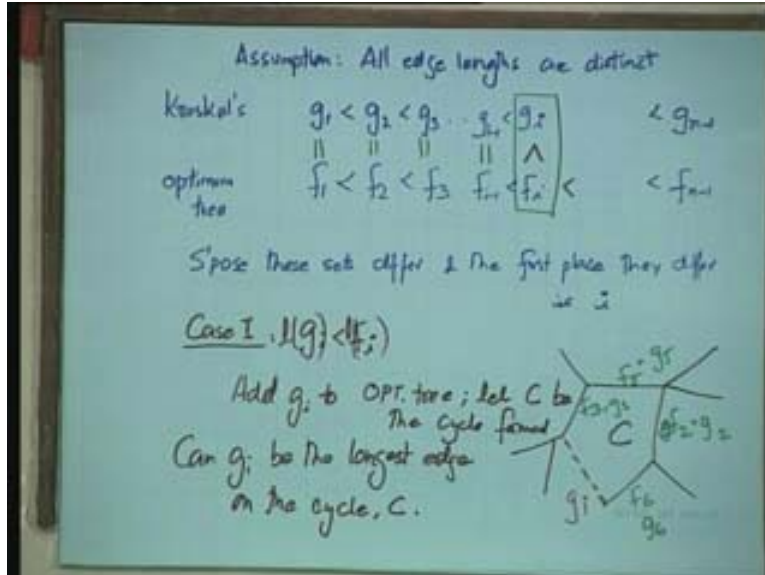 Assumption: All edge lengths are distinct
Kruskal's g₁ < g₂ < g₃ .. gᵢ₋₁ < gᵢ < gₙ₋₁
|| || || || ∧
optimum tree f₁ < f₂ < f₃ fᵢ₋₁ < fᵢ < < fₙ₋₁
S'pose these sets differ & the first place they differ
is i
Case I. l(gᵢ) < l(fᵢ)
Add gᵢ to OPT. tree; let C be
the cycle formed
Can gᵢ be the longest edge
on the cycle, C.
f₅ = g₅
f₃ = g₃
C
f₂ = g₂
gᵢ
f₆
g₆